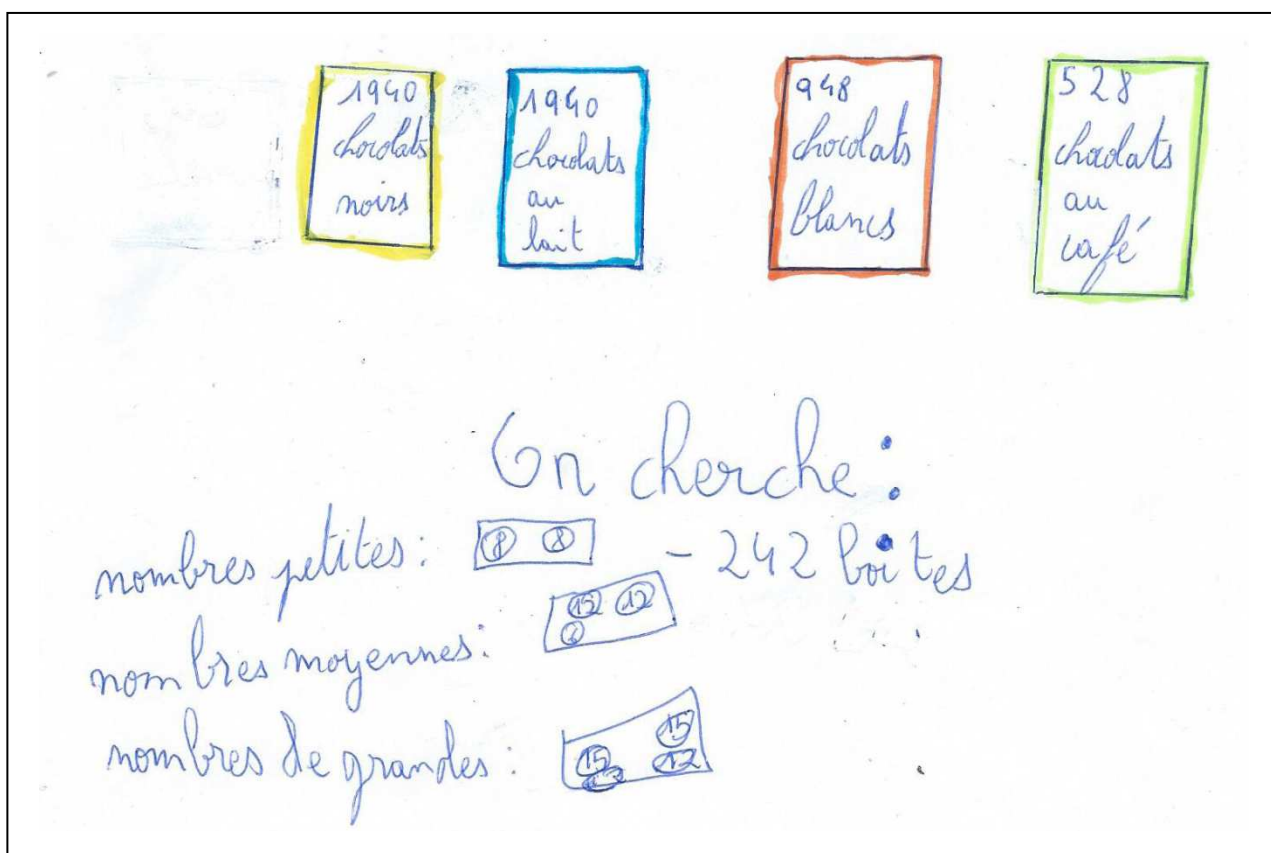 1940
chocolats
noirs
1940
chocolats
au
lait
948
chocolats
blancs
528
chocolats
au
café
On cherche :
nombres petites : 8 8 - 242 boîtes
nombres moyennes : 12 12
nombres de grandes : 15 15
12